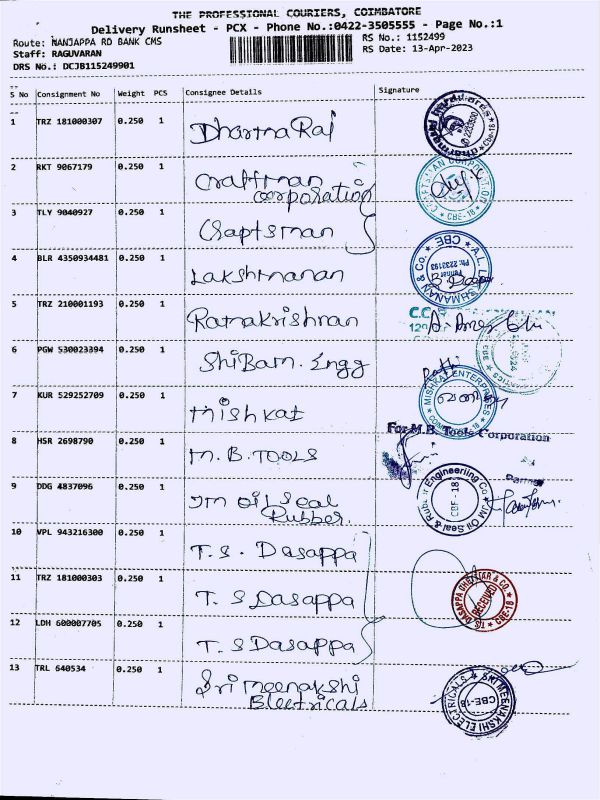 THE PROFESSIONAL COURIERS, COIMBATORE
Delivery Runsheet - PCX - Phone No.:0422-3505555 - Page No.:1
Route: NANJAPPA RD BANK CMS
RS No.: 1152499
Staff: RAGUVARAN
RS Date: 13-Apr-2023
DRS No.: DCJB115249901
S No Consignment No Weight PCS Consignee Details Signature
1 TRZ 181000307 0.250 1 Dharma Raj
2 RKT 9067179 0.250 1 Craftman
corporation
3 TLY 9040927 0.250 1 Craptsman
4 BLR 4350934481 0.250 1 Lakshmanan
A.L. LAKSHMANAN & Co.
CBE
Ph: 2233193
5 TRZ 210001193 0.250 1 Ramakrishnan
6 PGW 530023394 0.250 1 ShiBam. Engg
7 KUR 529252709 0.250 1 Mishkat
MISHKAT ENTERPRISES
8 HSR 2698790 0.250 1 M. B. TOOLS
For M.B. Tools Corporation
Partner
9 DDG 4837096 0.250 1 Jm oil seal
Rubber.
JM Oil Seal & Rubber Engineering Co
CBE-18
10 VPL 943216300 0.250 1 T. S. Dasappa
11 TRZ 181000303 0.250 1 T. S Dasappa
T.S. DASAPPA CHETTIAR & CO.
RECEIVED
CBE-18
12 LDH 600007705 0.250 1 T. S Dasappa
13 TRL 640534 0.250 1 Sri meenakshi
Electricals
SRI MEENAKSHI ELECTRICALS
CBE-18